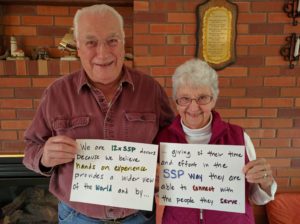 We are 12x SSP donors
because we believe
hands on experience
provides a wider view
of the world and by...
giving of their time
and effort in the
SSP way they are
able to connect with
the people they serve